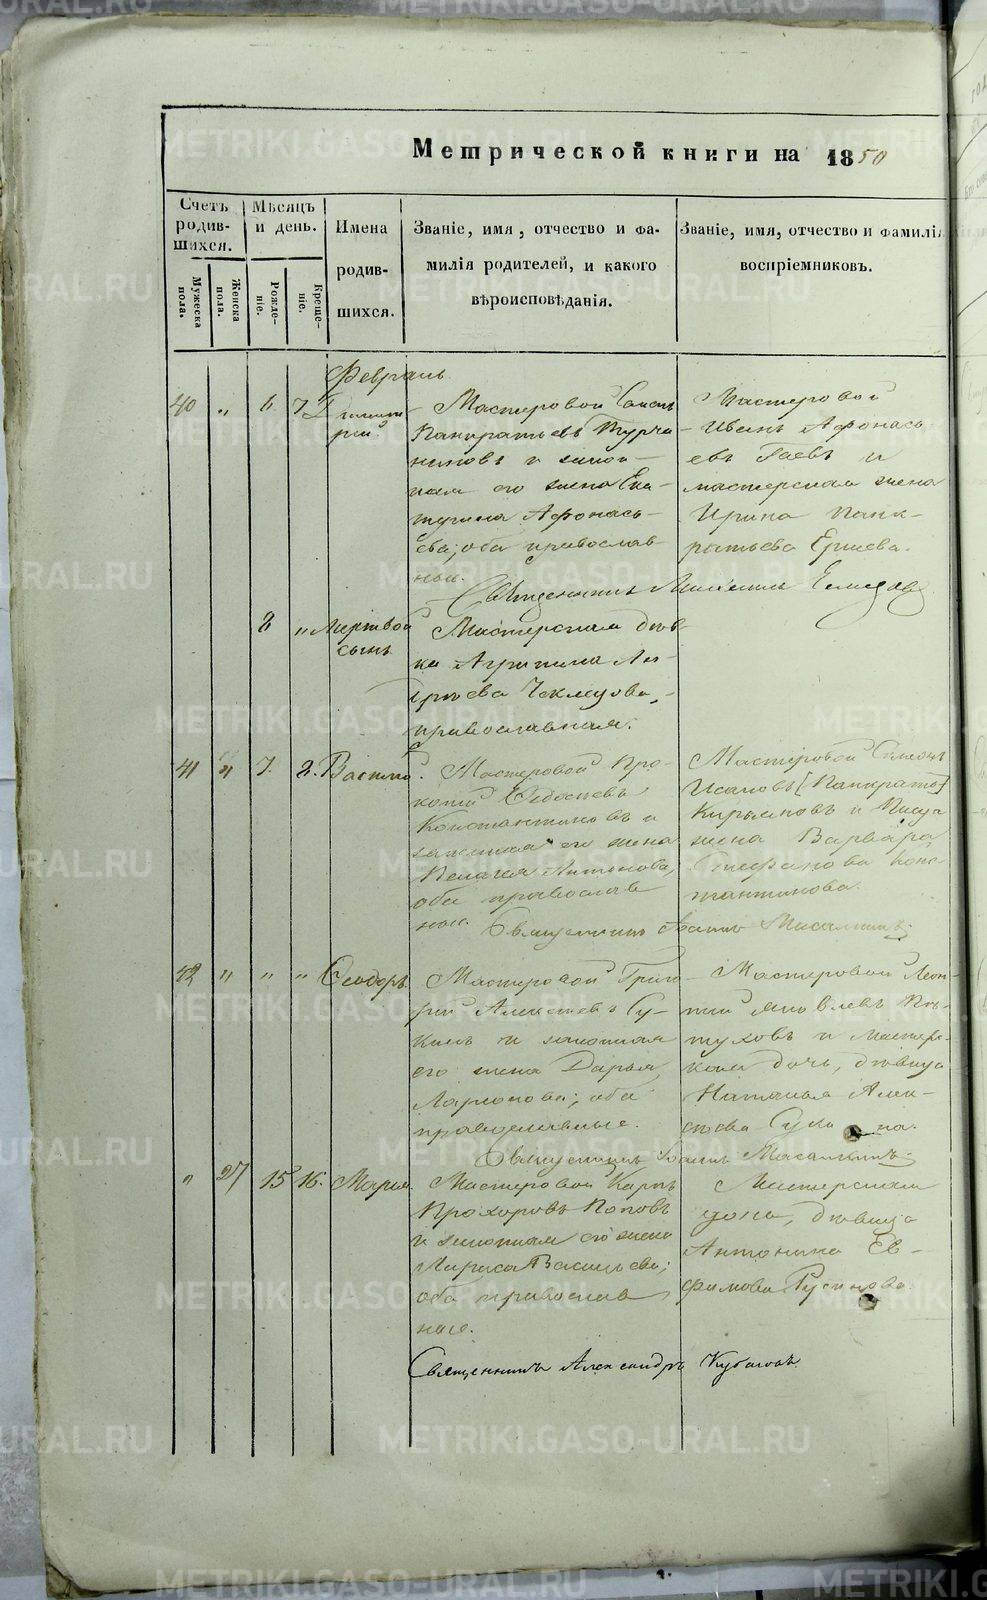 Метрической книги на 1850
Счетъ родив-шихся.
Мужеска пола.
Женска пола.
Мѣсяцъ и день.
Рожде-ніе.
Креще-ніе.
Имена
родив-
шихся.
Званіе, имя, отчество и фа-
милія родителей, и какого
вѣроисповѣданія.
Званіе, имя, отчество и фамилія
воспріемниковъ.
Февраль
40 " 6 7 Димит-
рий
Мастеровой
Панкратьевъ Турча
ниновъ и закон-
ная его жена Ека-
терина Афонась-
ева, оба православ
ные.
Мастеровой
Иванъ Афонась
евъ Гаевъ и
мастерская жена
Ирина Панк-
ратьева Ершева.
Священникъ
8 " Мертвой
сынъ
Мастерская дѣв-
ка Агрипина
православная.
41 " 7. 8. Василий.
Мастеровой Про-
копий
Константиновъ и
законная его жена
Пелагея Антонова,
оба православ
ные.
Мастеровой Симеонъ
Исаковъ [Панкратов]
Кирьяновъ и
жена Варвара
Стефанова Конс
тантинова.
Священникъ
42 " " " Феодоръ
Мастеровой Григо
рий Алексѣевъ Су-
кинъ и законная
его жена Дарья
Ларионова; оба
православные.
Мастеровой Леон-
тий Яковлевъ Пѣ-
туховъ и мастерс-
кая дочь, дѣвица
Наталья Алек-
сѣева Сукина.
Священникъ
" 27 15 16. Мария.
Мастеровой Карпъ
Прохоровъ Поповъ
и законная его жена
Лариса Васильева;
оба православ
ные.
Мастерская
дочь, дѣвица
Антонина Ев-
фимова Русинова.
Священникъ Александръ
METRIKI.GASO-URAL.RU